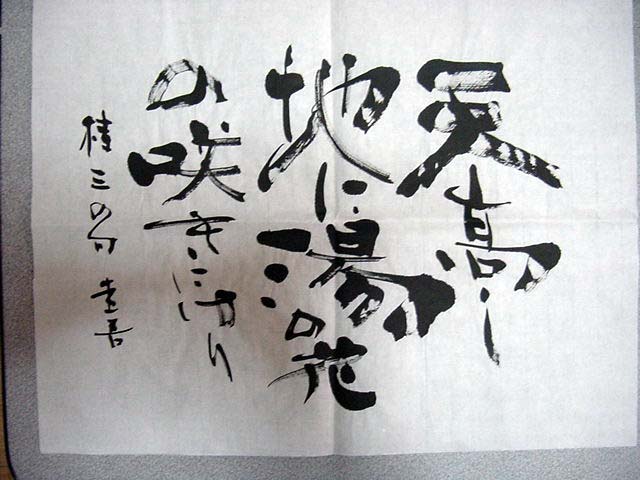 天高し
地に湯の花
の咲きにけり
桂三の句 圭吾